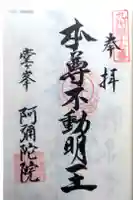 奉拝
本尊不動明王
堂ヶ峯
阿彌陀院